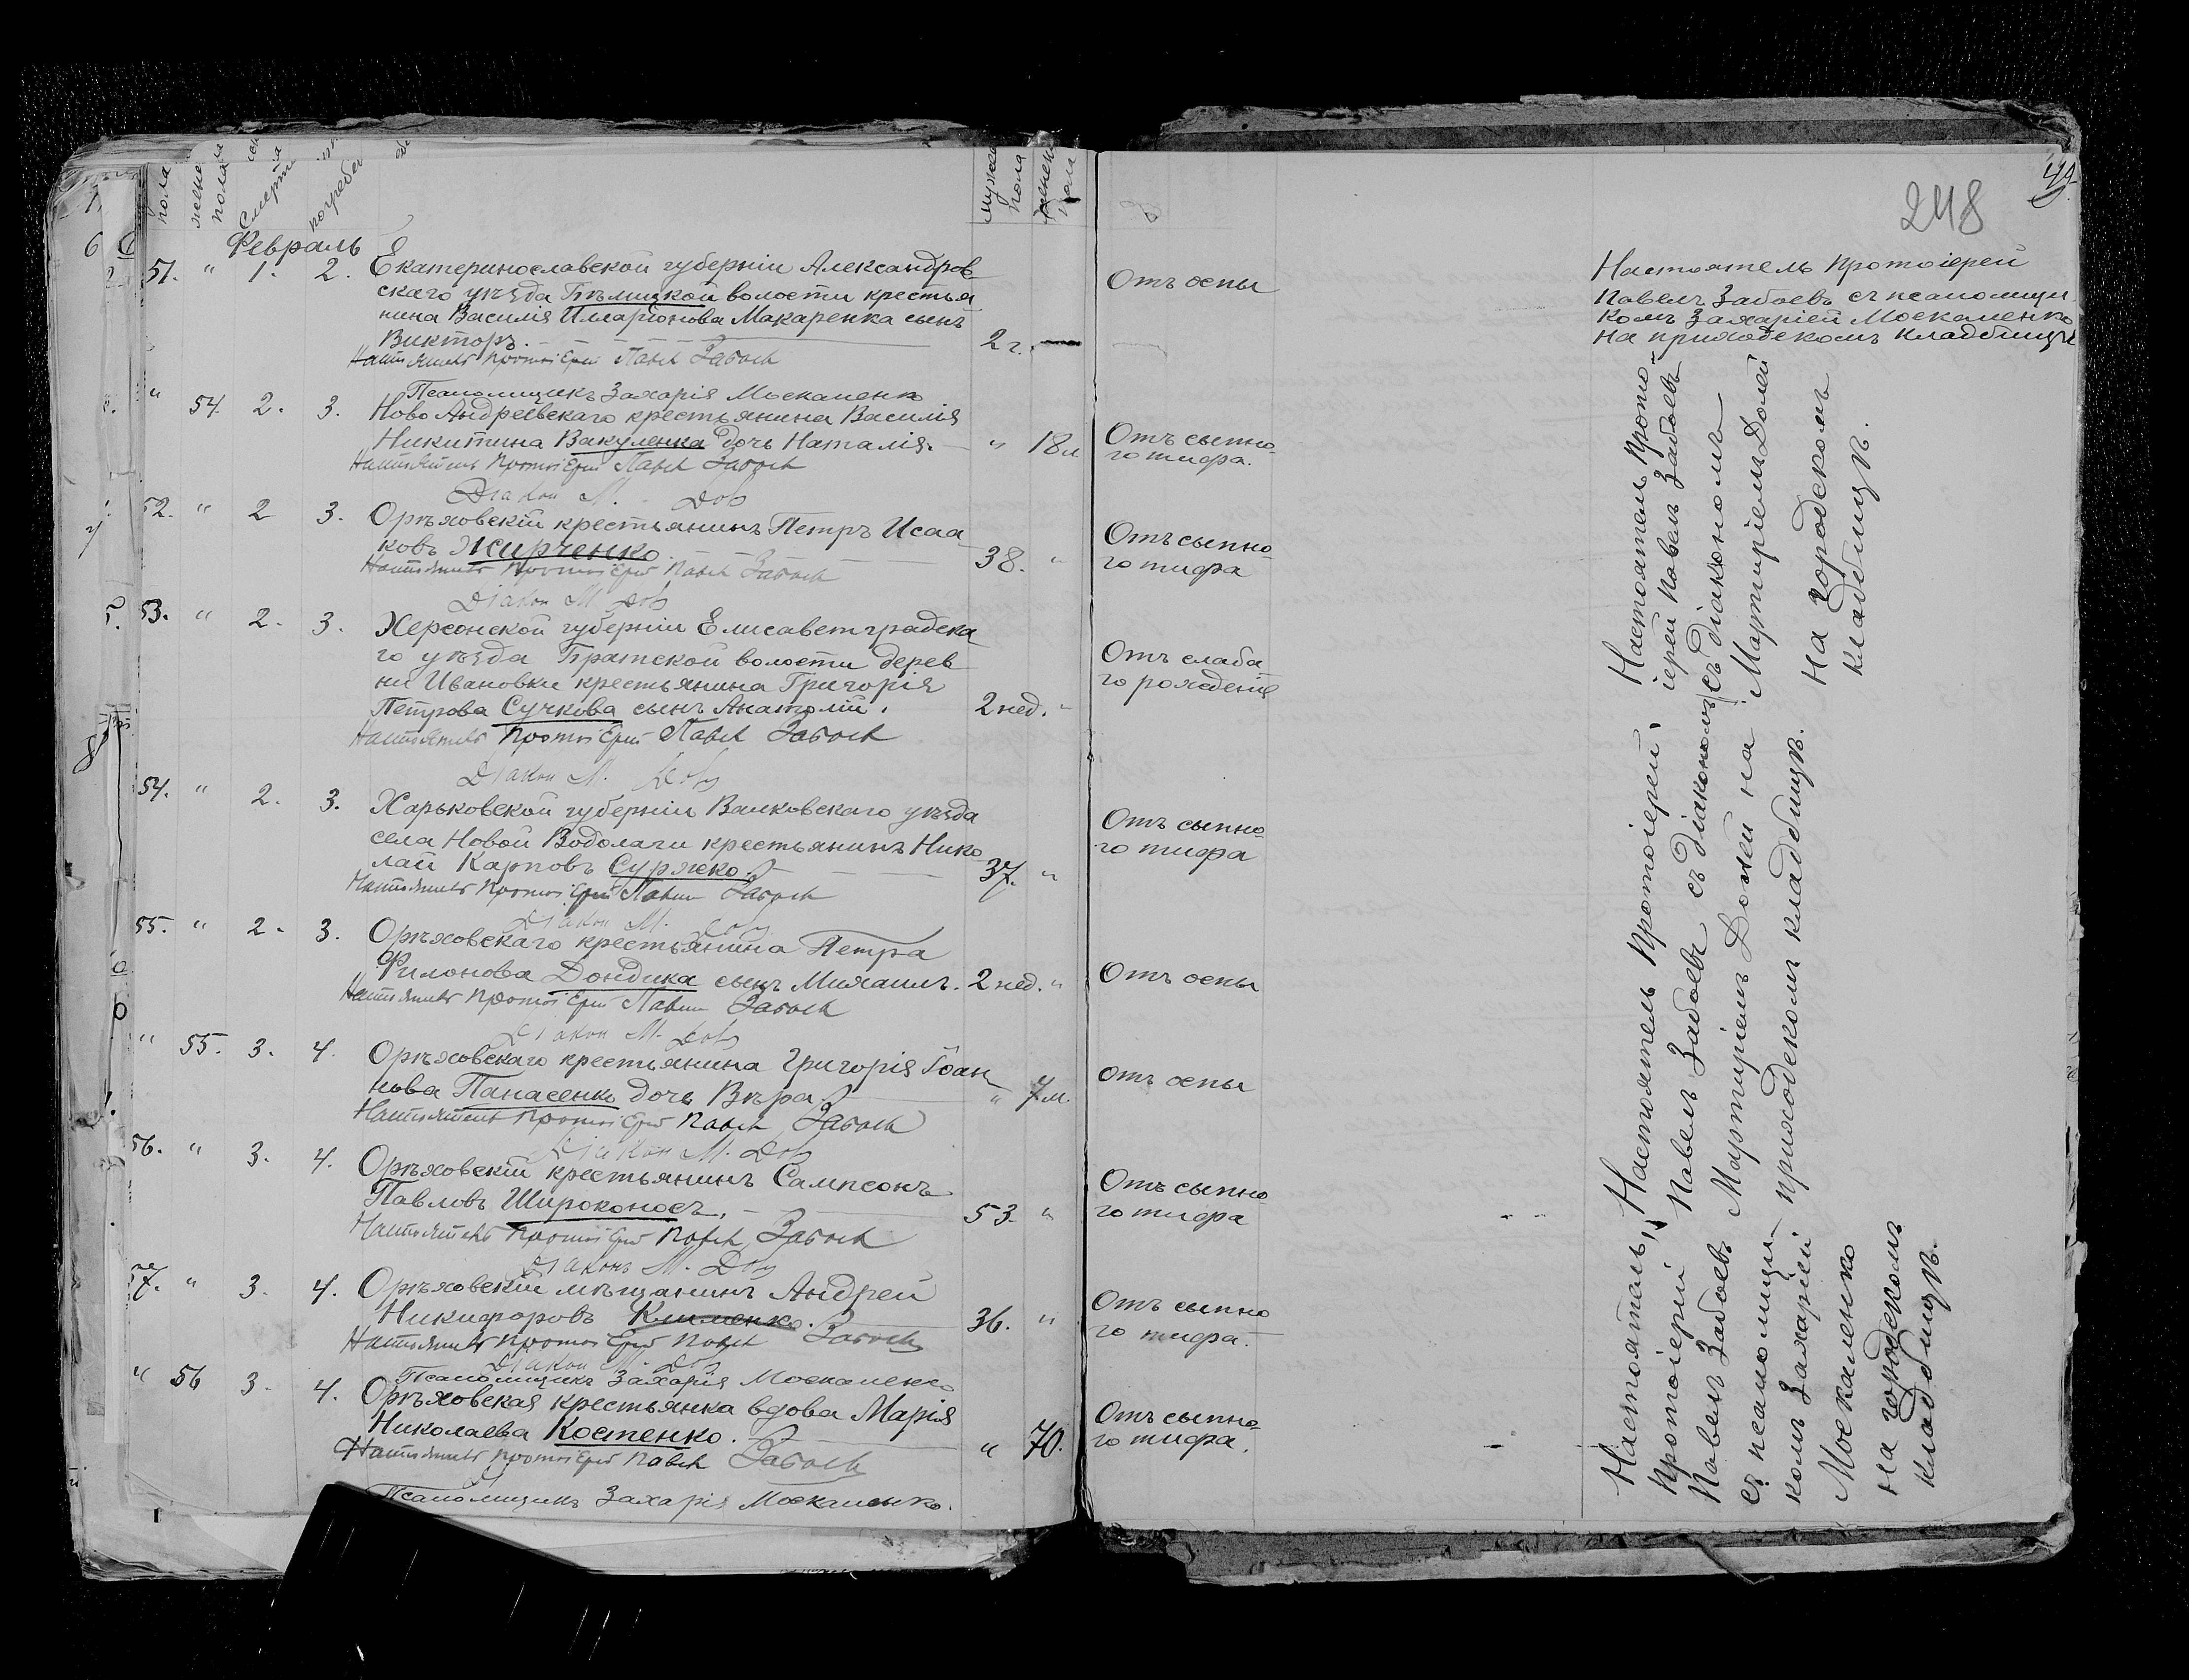 пола
женска
пола
Смерти
погребен
мужеск
пола
женск
пола
248
49
Февраль
51. " 1. 2. Екатеринославской губерніи Александров
скаго уѣзда Бѣлицкой волости крестья
нина Василія Илларіонова Макаренка сынъ
Викторъ. 2 г. —
Отъ оспы
Настоятель Протоіерей
Павелъ Забоевъ съ псаломщи
комъ Захаріей Москаленко
на приходскомъ кладбищѣ
Настоятель Протоіерей Павелъ Забоевъ
Псаломщикъ Захарія Москаленко
" 54. 2. 3. Ново Андреевскаго крестьянина Василія
Никитина Вакуленка дочь Наталія. " 18 л
Отъ сыпно
го тифа.
Настоятель Протоіерей Павелъ Забоевъ
Діакон М.
52. " 2 3. Орѣховскій крестьянинъ Петръ Исаа
ковъ Жирченко. 38. "
Отъ сыпно
го тифа
Настоятель Протоіерей Павелъ Забоевъ
Діакон М.
53. " 2. 3. Херсонской губерніи Елисаветградска
го уѣзда Братской волости дерев
ни Ивановки крестьянина Григорія
Петрова Сучкова сынъ Анатолій. 2 нед. "
Отъ слаба
го рожденія
Настоятель Протоіерей Павелъ Забоевъ
Діакон М.
54. " 2. 3. Харьковской губерніи Валковскаго уѣзда
села Новой Водолаги крестьянинъ Нико
лай Карповъ Суряжко. 37. "
Отъ сыпно
го тифа
Настоятель Протоіерей Павелъ Забоевъ
Діакон М.
55. " 2. 3. Орѣховскаго крестьянина Петра
Филонова Дондика сынъ Михаилъ. 2 нед. "
Отъ оспы
Настоятель Протоіерей Павелъ Забоевъ
Діакон М.
" 55. 3. 4. Орѣховскаго крестьянина Григорія Іоан
нова Панасенко дочь Вѣра. " 7 м.
Отъ оспы
Настоятель Протоіерей Павелъ Забоевъ
Діакон М.
56. " 3. 4. Орѣховскій крестьянинъ Сампсонъ
Павловъ Широконосъ. 53. "
Отъ сыпно
го тифа
Настоятель Протоіерей Павелъ Забоевъ
Діаконъ М.
57. " 3. 4. Орѣховскій мѣщанинъ Андрей
Никифоровъ Клименко. 36. "
Отъ сыпно
го тифа.
Настоятель Протоіерей Павелъ Забоевъ
Діакон М.
Псаломщикъ Захарія Москаленко
" 56 3. 4. Орѣховская крестьянка вдова Марія
Николаева Костенко. " 70.
Отъ сыпно
го тифа.
Настоятель Протоіерей Павелъ Забоевъ
Псаломщикъ Захарія Москаленко.
Настоятель Прото
іерей Павелъ Забоевъ
съ діакономъ
Мартиріемъ Долей
на городскомъ
кладбищѣ.
Настоятель Протоіерей,
Павелъ Забоевъ съ діакономъ
Мартиріемъ Долей на
приходскомъ кладбищѣ.
Настоятель,
Протоіерей
Павелъ Забоевъ
съ псаломщи
комъ Захаріей
Москаленко
на городскомъ
кладбищѣ.